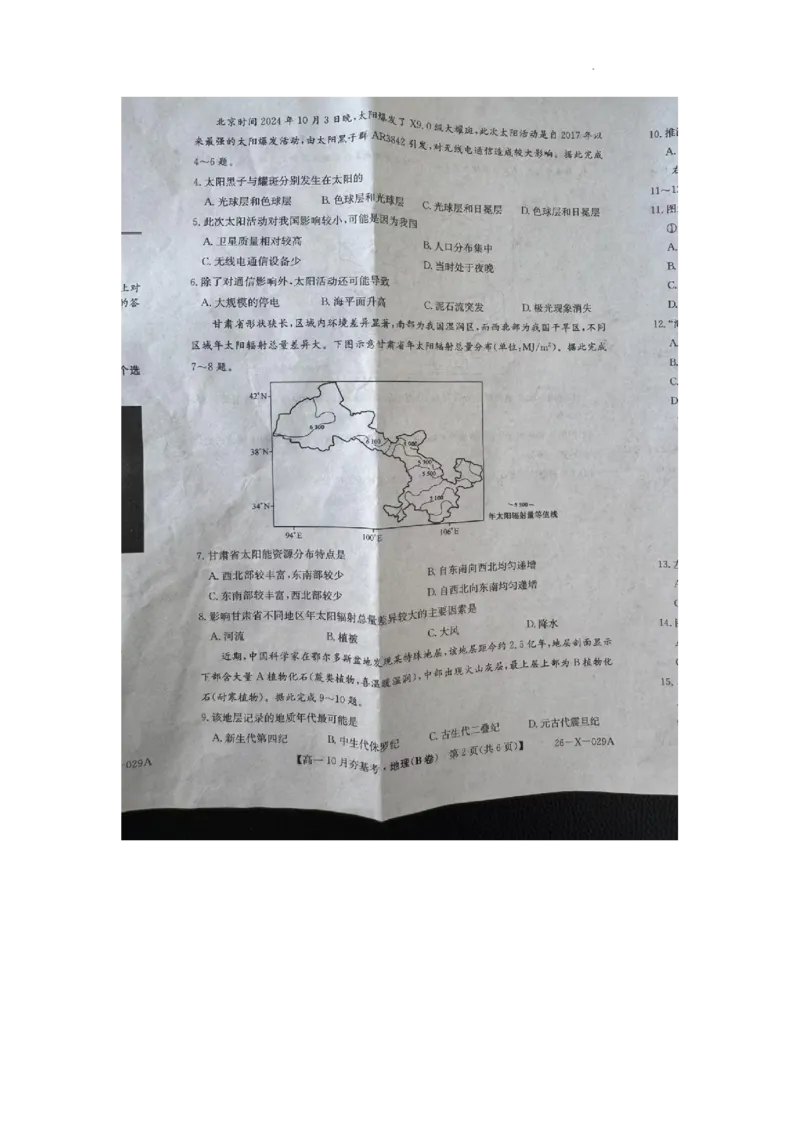 北京时间2024年10月3日晚,太阳爆发了X9.0级大耀斑,此次太阳活动是自2017年以
来最强的太阳爆发活动,由太阳黑子群AR3842引发,对无线电通信造成较大影响。据此完成
4～6题。
4.太阳黑子与耀斑分别发生在太阳的
A.光球层和色球层 B.色球层和光球层 C.光球层和日冕层 D.色球层和日冕层
5.此次太阳活动对我国影响较小,可能是因为我国
A.卫星质量相对较高 B.人口分布集中
C.无线电通信设备少 D.当时处于夜晚
6.除了对通信影响外,太阳活动还可能导致
A.大规模的停电 B.海平面升高 C.泥石流突发 D.极光现象消失
甘肃省形状狭长,区域内环境差异显著,南部为我国湿润区,而西北部为我国干旱区,不同
区域年太阳辐射总量差异大。下图示意甘肃省年太阳辐射总量分布(单位:MJ/m²)。据此完成
7～8题。
42°N
6 300
6 100
38°N
5 500
34°N
5 100
～5 500～
年太阳辐射量等值线
94°E 100°E 106°E
7.甘肃省太阳能资源分布特点是
A.西北部较丰富,东南部较少 B.自东南向西北均匀递增
C.东南部较丰富,西北部较少 D.自西北向东南均匀递增
8.影响甘肃省不同地区年太阳辐射总量差异较大的主要因素是
A.河流 B.植被 C.大风 D.降水
近期,中国科学家在鄂尔多斯盆地发现某特殊地层,该地层距今约2.5亿年,地层剖面显示
下部含大量A植物化石(蕨类植物,喜温暖湿润),中部出现火山灰层,最上层上部为B植物化
石(耐寒植物)。据此完成9～10题。
9.该地层记录的地质年代最可能是
A.新生代第四纪 B.中生代侏罗纪 C.古生代二叠纪 D.元古代震旦纪
【高一10月夯基考·地理(B卷) 第2页(共6页)】 26－X－029A
上对
的答
个选
-029A
10.推
A.
11～1
11.图
①
A.
B.
C.
D.
12.
A.
B.
C.
D
13.
14.
15.